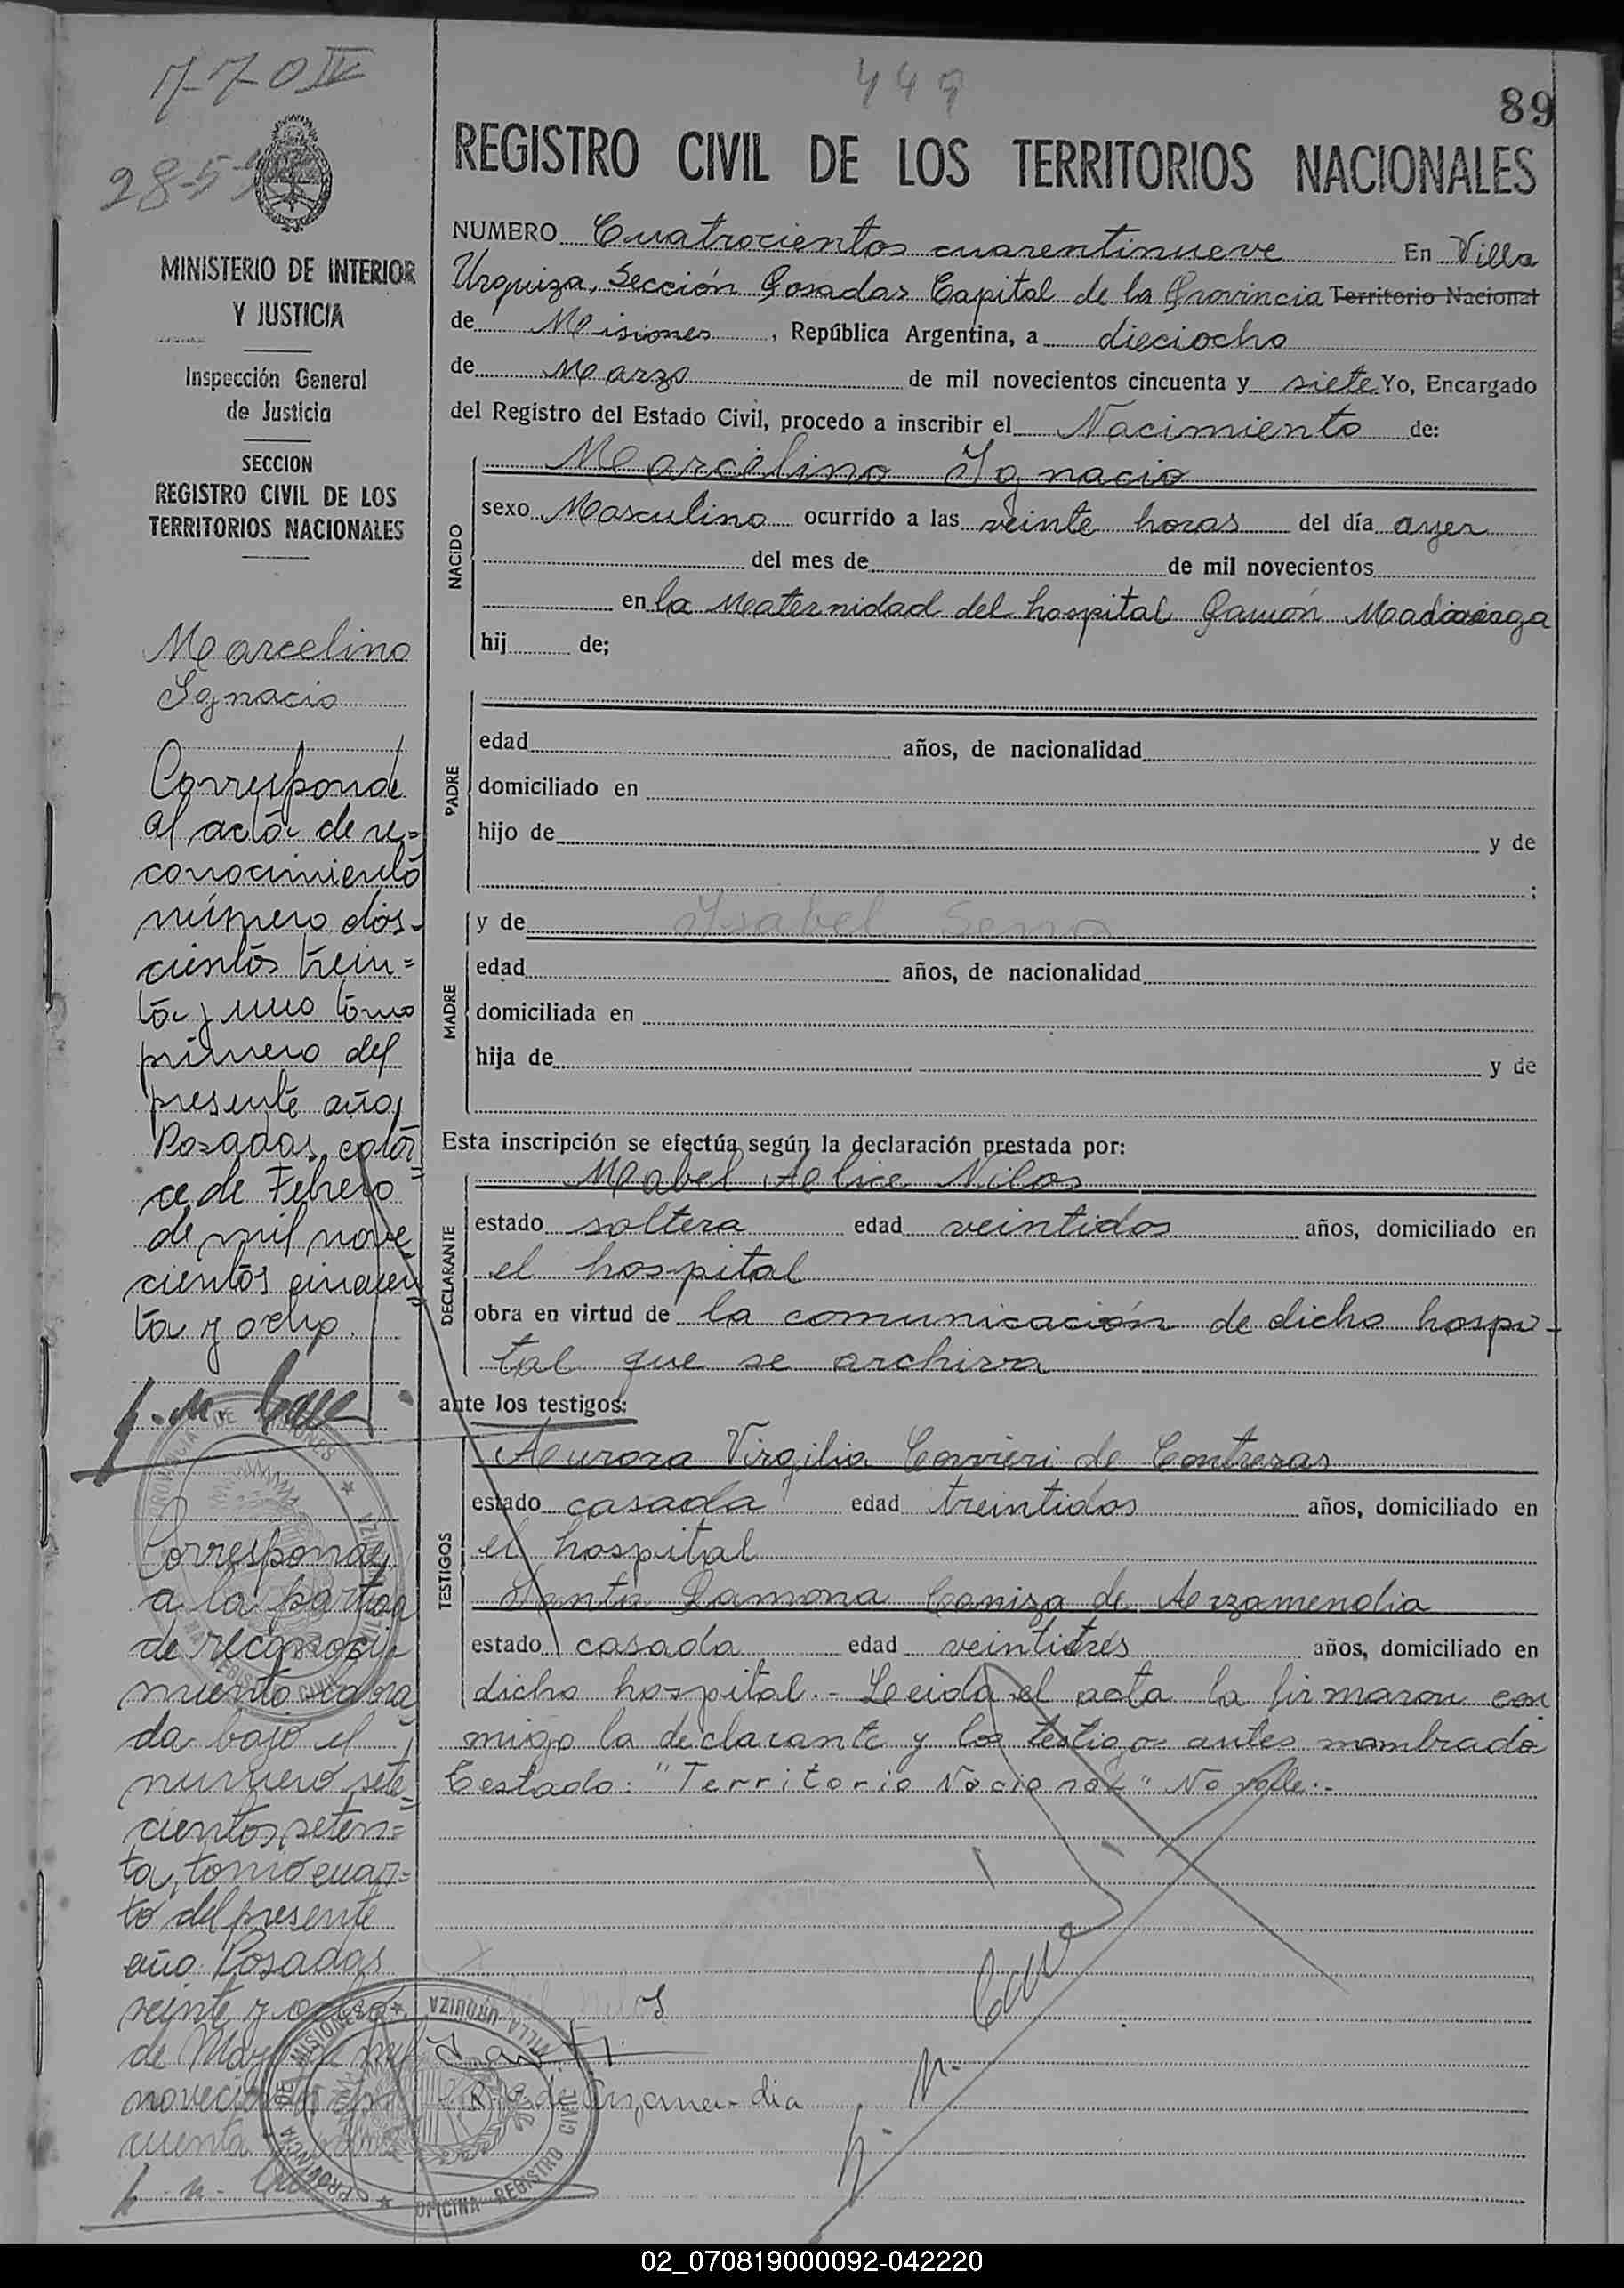 770 IV
449
89
28-5-
REGISTRO CIVIL DE LOS TERRITORIOS NACIONALES
MINISTERIO DE INTERIOR
Y JUSTICIA
Inspección General
de Justicia
SECCION
REGISTRO CIVIL DE LOS
TERRITORIOS NACIONALES
Marcelino
Ignacio
Corresponde
al acta de re=
conocimiento
número dos-
cientos trein=
ta y uno tomo
primero del
presente año,
Posadas, cator
ce de Febrero
de mil nove
cientos cincuen=
ta y ocho.
Corresponde
a la partida
de reconoci-
miento labra
da bajo el
número sete=
cientos seten=
ta, tomo cuar=
to del presente
año. Posadas
veinte y ocho
de Mayo de mil
novecientos cin
cuenta
NUMERO Cuatrocientos cuarentinueve En Villa
Urquiza, Sección Posadas Capital de la Provincia Territorio Nacional
de Misiones, República Argentina, a dieciocho
de Marzo de mil novecientos cincuenta y siete Yo, Encargado
del Registro del Estado Civil, procedo a inscribir el Nacimiento de:
NACIDO
Marcelino Ignacio
sexo Masculino ocurrido a las veinte horas del día ayer
del mes de de mil novecientos
en la Maternidad del hospital Ramón Madariaga
hij de;
PADRE
edad años, de nacionalidad
domiciliado en
hijo de y de
;
MADRE
y de Ysabel Sena
edad años, de nacionalidad
domiciliada en
hija de y de
Esta inscripción se efectúa según la declaración prestada por:
DECLARANTE
Mabel Alice Nilos
estado soltera edad veintidos años, domiciliado en
el hospital
obra en virtud de la comunicación de dicho hospi-
tal que se archiva
ante los testigos:
TESTIGOS
Aurora Virgilia Cervieri de Contreras
estado casada edad treintidos años, domiciliado en
el hospital
Santa Ramona Caniza de Arzamendia
estado casada edad veintitrés años, domiciliado en
dicho hospital.- Leida el acta la firmaron con
migo la declarante y los testigos antes nombrado
Testado: "Territorio Nacional" No vale:-
R. C. de Arzamendia
PROVINCIA DE MISIONES ★ VILLA URQUIZA
OFICINA REGISTRO CIVIL
02_070819000092-042220